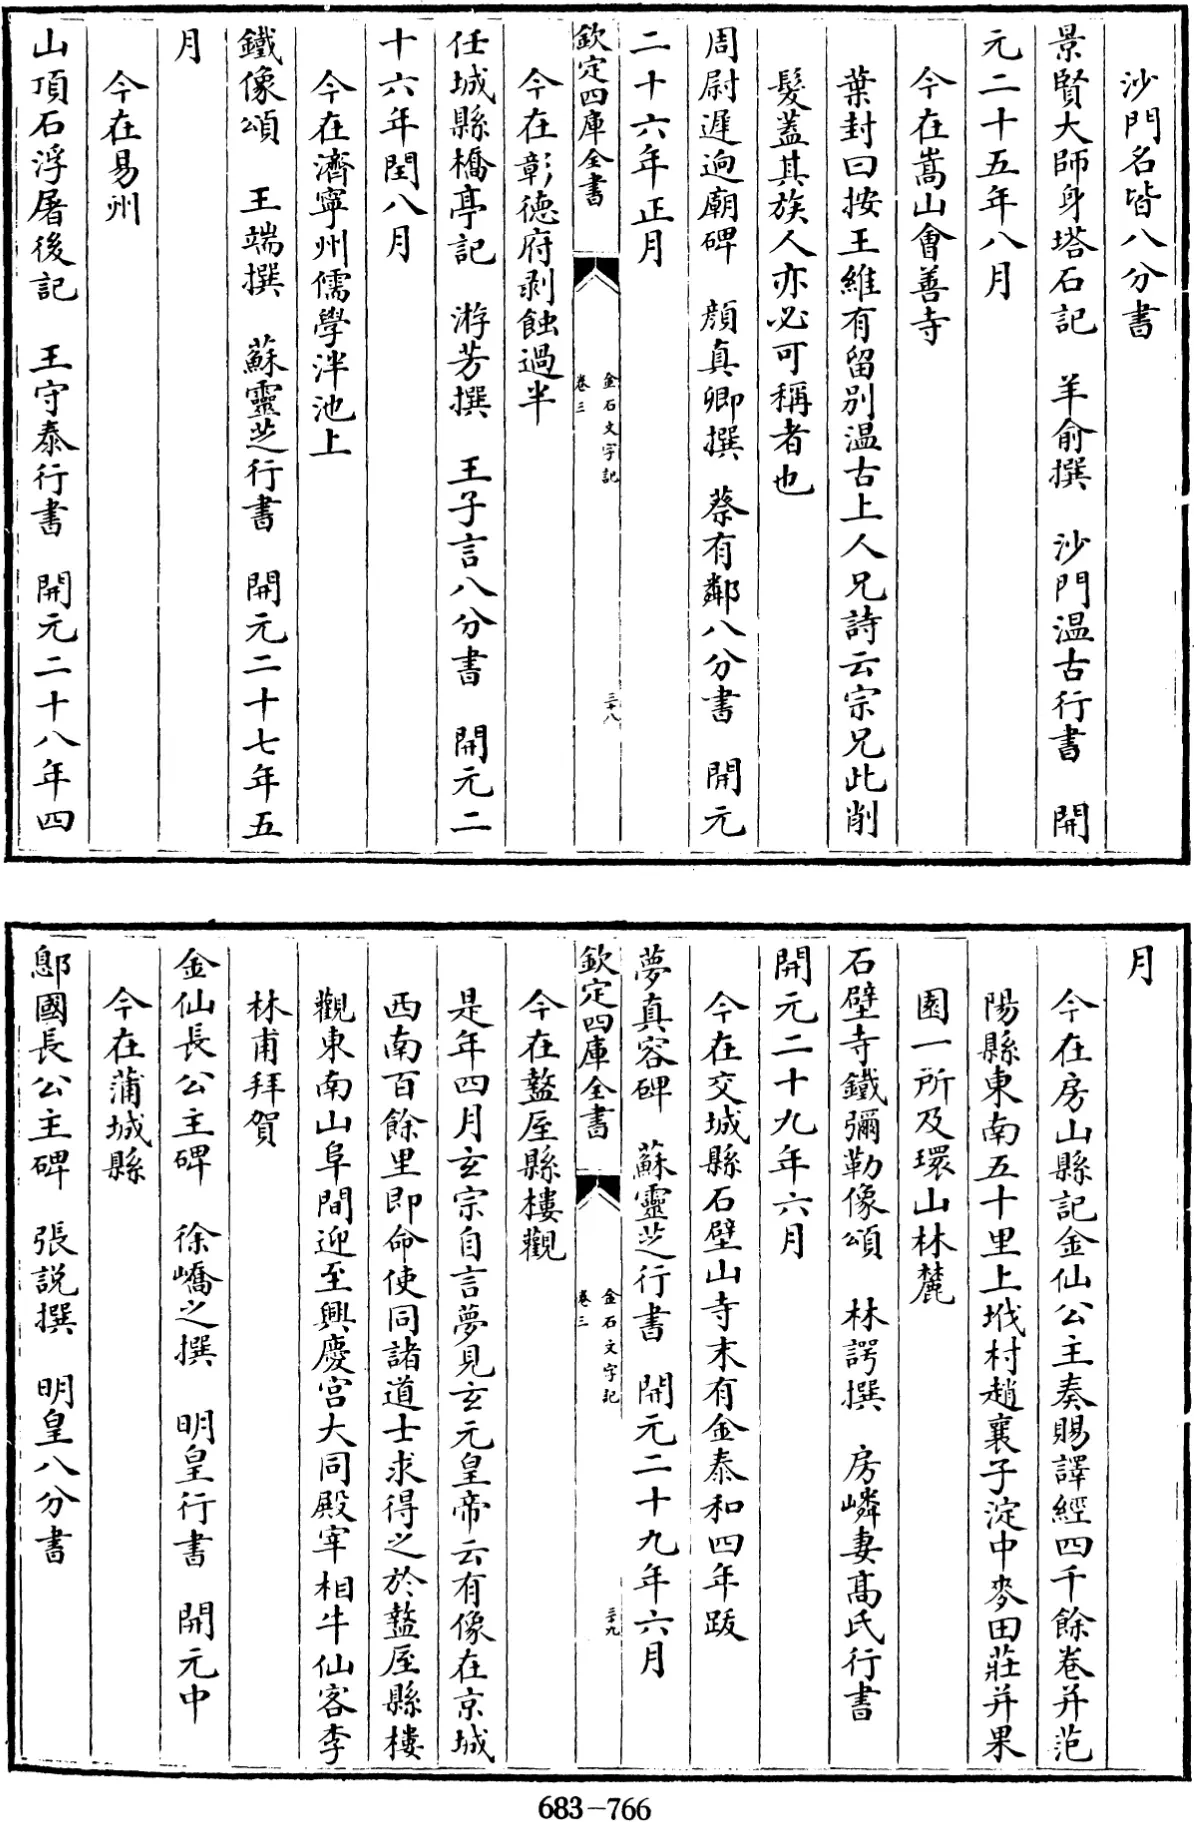 沙門名皆八分書
景賢大師身塔石記　羊俞撰　沙門温古行書　開
元二十五年八月
今在嵩山會善寺
葉封曰按王維有留别温古上人兄詩云宗兄此削
髮蓋其族人亦必可稱者也
周尉遲迥廟碑　顔真卿撰　蔡有鄰八分書　開元
二十六年正月
欽定四庫全書
金石文字記
卷三
三十八
今在彰徳府剥蝕過半
任城縣橋亭記　游芳撰　王子言八分書　開元二
十六年閏八月
今在濟寧州儒學泮池上
鐵像頌　王端撰　蘇靈芝行書　開元二十七年五
月
今在易州
山頂石浮屠後記　王守泰行書　開元二十八年四
月
今在房山縣記金仙公主奏賜譯經四千餘卷并范
陽縣東南五十里上垡村趙襄子淀中麥田莊并果
園一所及環山林麓
石壁寺鐵彌勒像頌　林諤撰　房嶙妻髙氏行書
開元二十九年六月
今在交城縣石壁山寺末有金泰和四年跋
夢真容碑　蘇靈芝行書　開元二十九年六月
欽定四庫全書
金石文字記
卷三
三十九
今在盩厔縣樓觀
是年四月玄宗自言夢見玄元皇帝云有像在京城
西南百餘里即命使同諸道士求得之於盩厔縣樓
觀東南山阜間迎至興慶宫大同殿宰相牛仙客李
林甫拜賀
金仙長公主碑　徐嶠之撰　明皇行書　開元中
今在蒲城縣
鄎國長公主碑　張説撰　明皇八分書
683-766